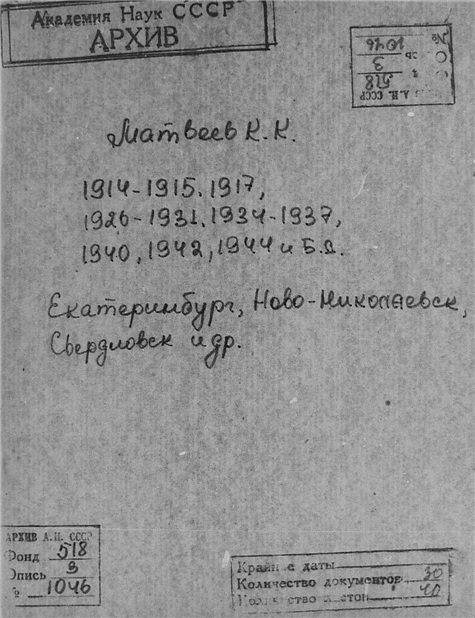 Академия Наук СССР
АРХИВ
№ 1046
О ь 3
518
А.Н. СССР
Матвеев К.К.
1914-1915, 1917,
1926-1931, 1934-1937,
1940, 1942, 1944 и Б.Д.
Екатеринбург, Ново-Николаевск,
Свердловск и др.
АРХИВ А.Н. СССР
Фонд 518
Опись 3
№ 1046
Крайн е даты
Количество документов 30
Кол чество л стов 40